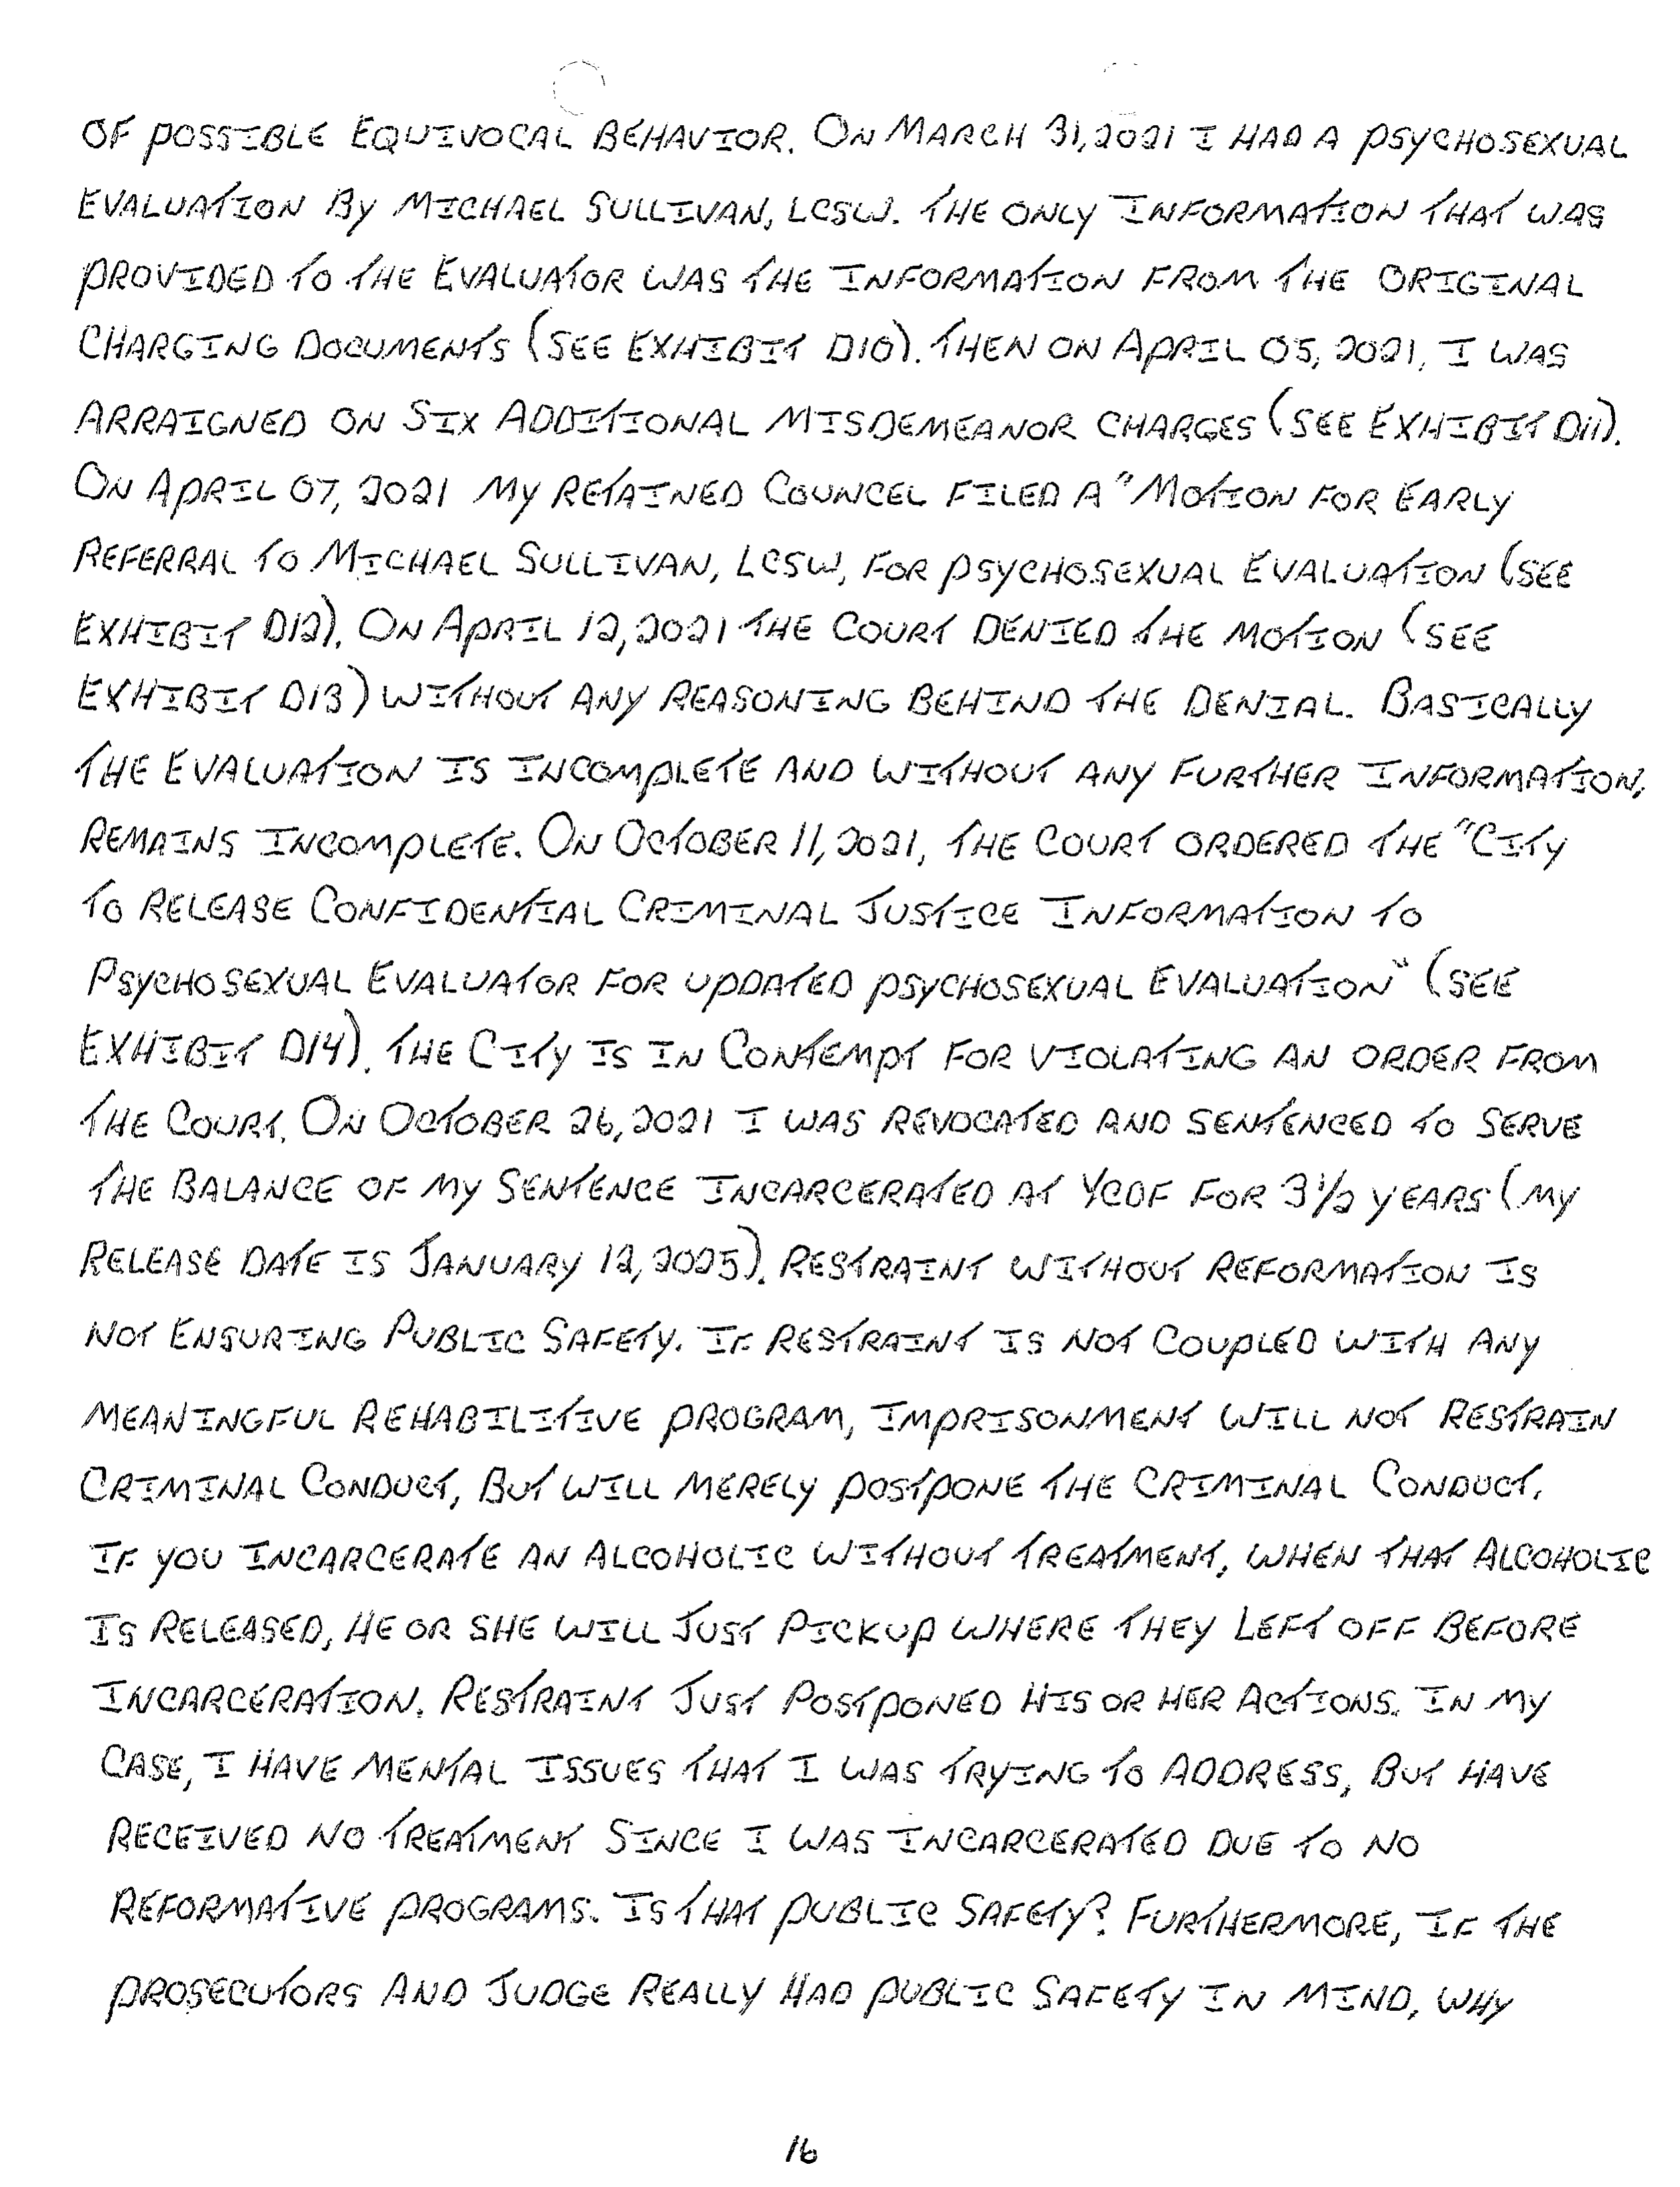 OF POSSIBLE EQUIVOCAL BEHAVIOR. ON MARCH 31, 2021 I HAD A PSYCHOSEXUAL
EVALUATION BY MICHAEL SULLIVAN, LCSW. THE ONLY INFORMATION THAT WAS
PROVIDED TO THE EVALUATOR WAS THE INFORMATION FROM THE ORIGINAL
CHARGING DOCUMENTS (SEE EXHIBIT D10). THEN ON APRIL 05, 2021, I WAS
ARRAIGNED ON SIX ADDITIONAL MISDEMEANOR CHARGES (SEE EXHIBIT D11).
ON APRIL 07, 2021 MY RETAINED COUNCEL FILED A "MOTION FOR EARLY
REFERRAL TO MICHAEL SULLIVAN, LCSW, FOR PSYCHOSEXUAL EVALUATION (SEE
EXHIBIT D12). ON APRIL 12, 2021 THE COURT DENIED THE MOTION (SEE
EXHIBIT D13) WITHOUT ANY REASONING BEHIND THE DENIAL. BASICALLY
THE EVALUATION IS INCOMPLETE AND WITHOUT ANY FURTHER INFORMATION,
REMAINS INCOMPLETE. ON OCTOBER 11, 2021, THE COURT ORDERED THE "CITY
TO RELEASE CONFIDENTIAL CRIMINAL JUSTICE INFORMATION TO
PSYCHOSEXUAL EVALUATOR FOR UPDATED PSYCHOSEXUAL EVALUATION" (SEE
EXHIBIT D14). THE CITY IS IN CONTEMPT FOR VIOLATING AN ORDER FROM
THE COURT. ON OCTOBER 26, 2021 I WAS REVOCATED AND SENTENCED TO SERVE
THE BALANCE OF MY SENTENCE INCARCERATED AT YCDF FOR 3 1/2 YEARS (MY
RELEASE DATE IS JANUARY 12, 2025). RESTRAINT WITHOUT REFORMATION IS
NOT ENSURING PUBLIC SAFETY. IF RESTRAINT IS NOT COUPLED WITH ANY
MEANINGFUL REHABILITIVE PROGRAM, IMPRISONMENT WILL NOT RESTRAIN
CRIMINAL CONDUCT, BUT WILL MERELY POSTPONE THE CRIMINAL CONDUCT.
IF YOU INCARCERATE AN ALCOHOLIC WITHOUT TREATMENT, WHEN THAT ALCOHOLIC
IS RELEASED, HE OR SHE WILL JUST PICKUP WHERE THEY LEFT OFF BEFORE
INCARCERATION. RESTRAINT JUST POSTPONED HIS OR HER ACTIONS. IN MY
CASE, I HAVE MENTAL ISSUES THAT I WAS TRYING TO ADDRESS, BUT HAVE
RECEIVED NO TREATMENT SINCE I WAS INCARCERATED DUE TO NO
REFORMATIVE PROGRAMS. IS THAT PUBLIC SAFETY? FURTHERMORE, IF THE
PROSECUTORS AND JUDGE REALLY HAD PUBLIC SAFETY IN MIND, WHY
16